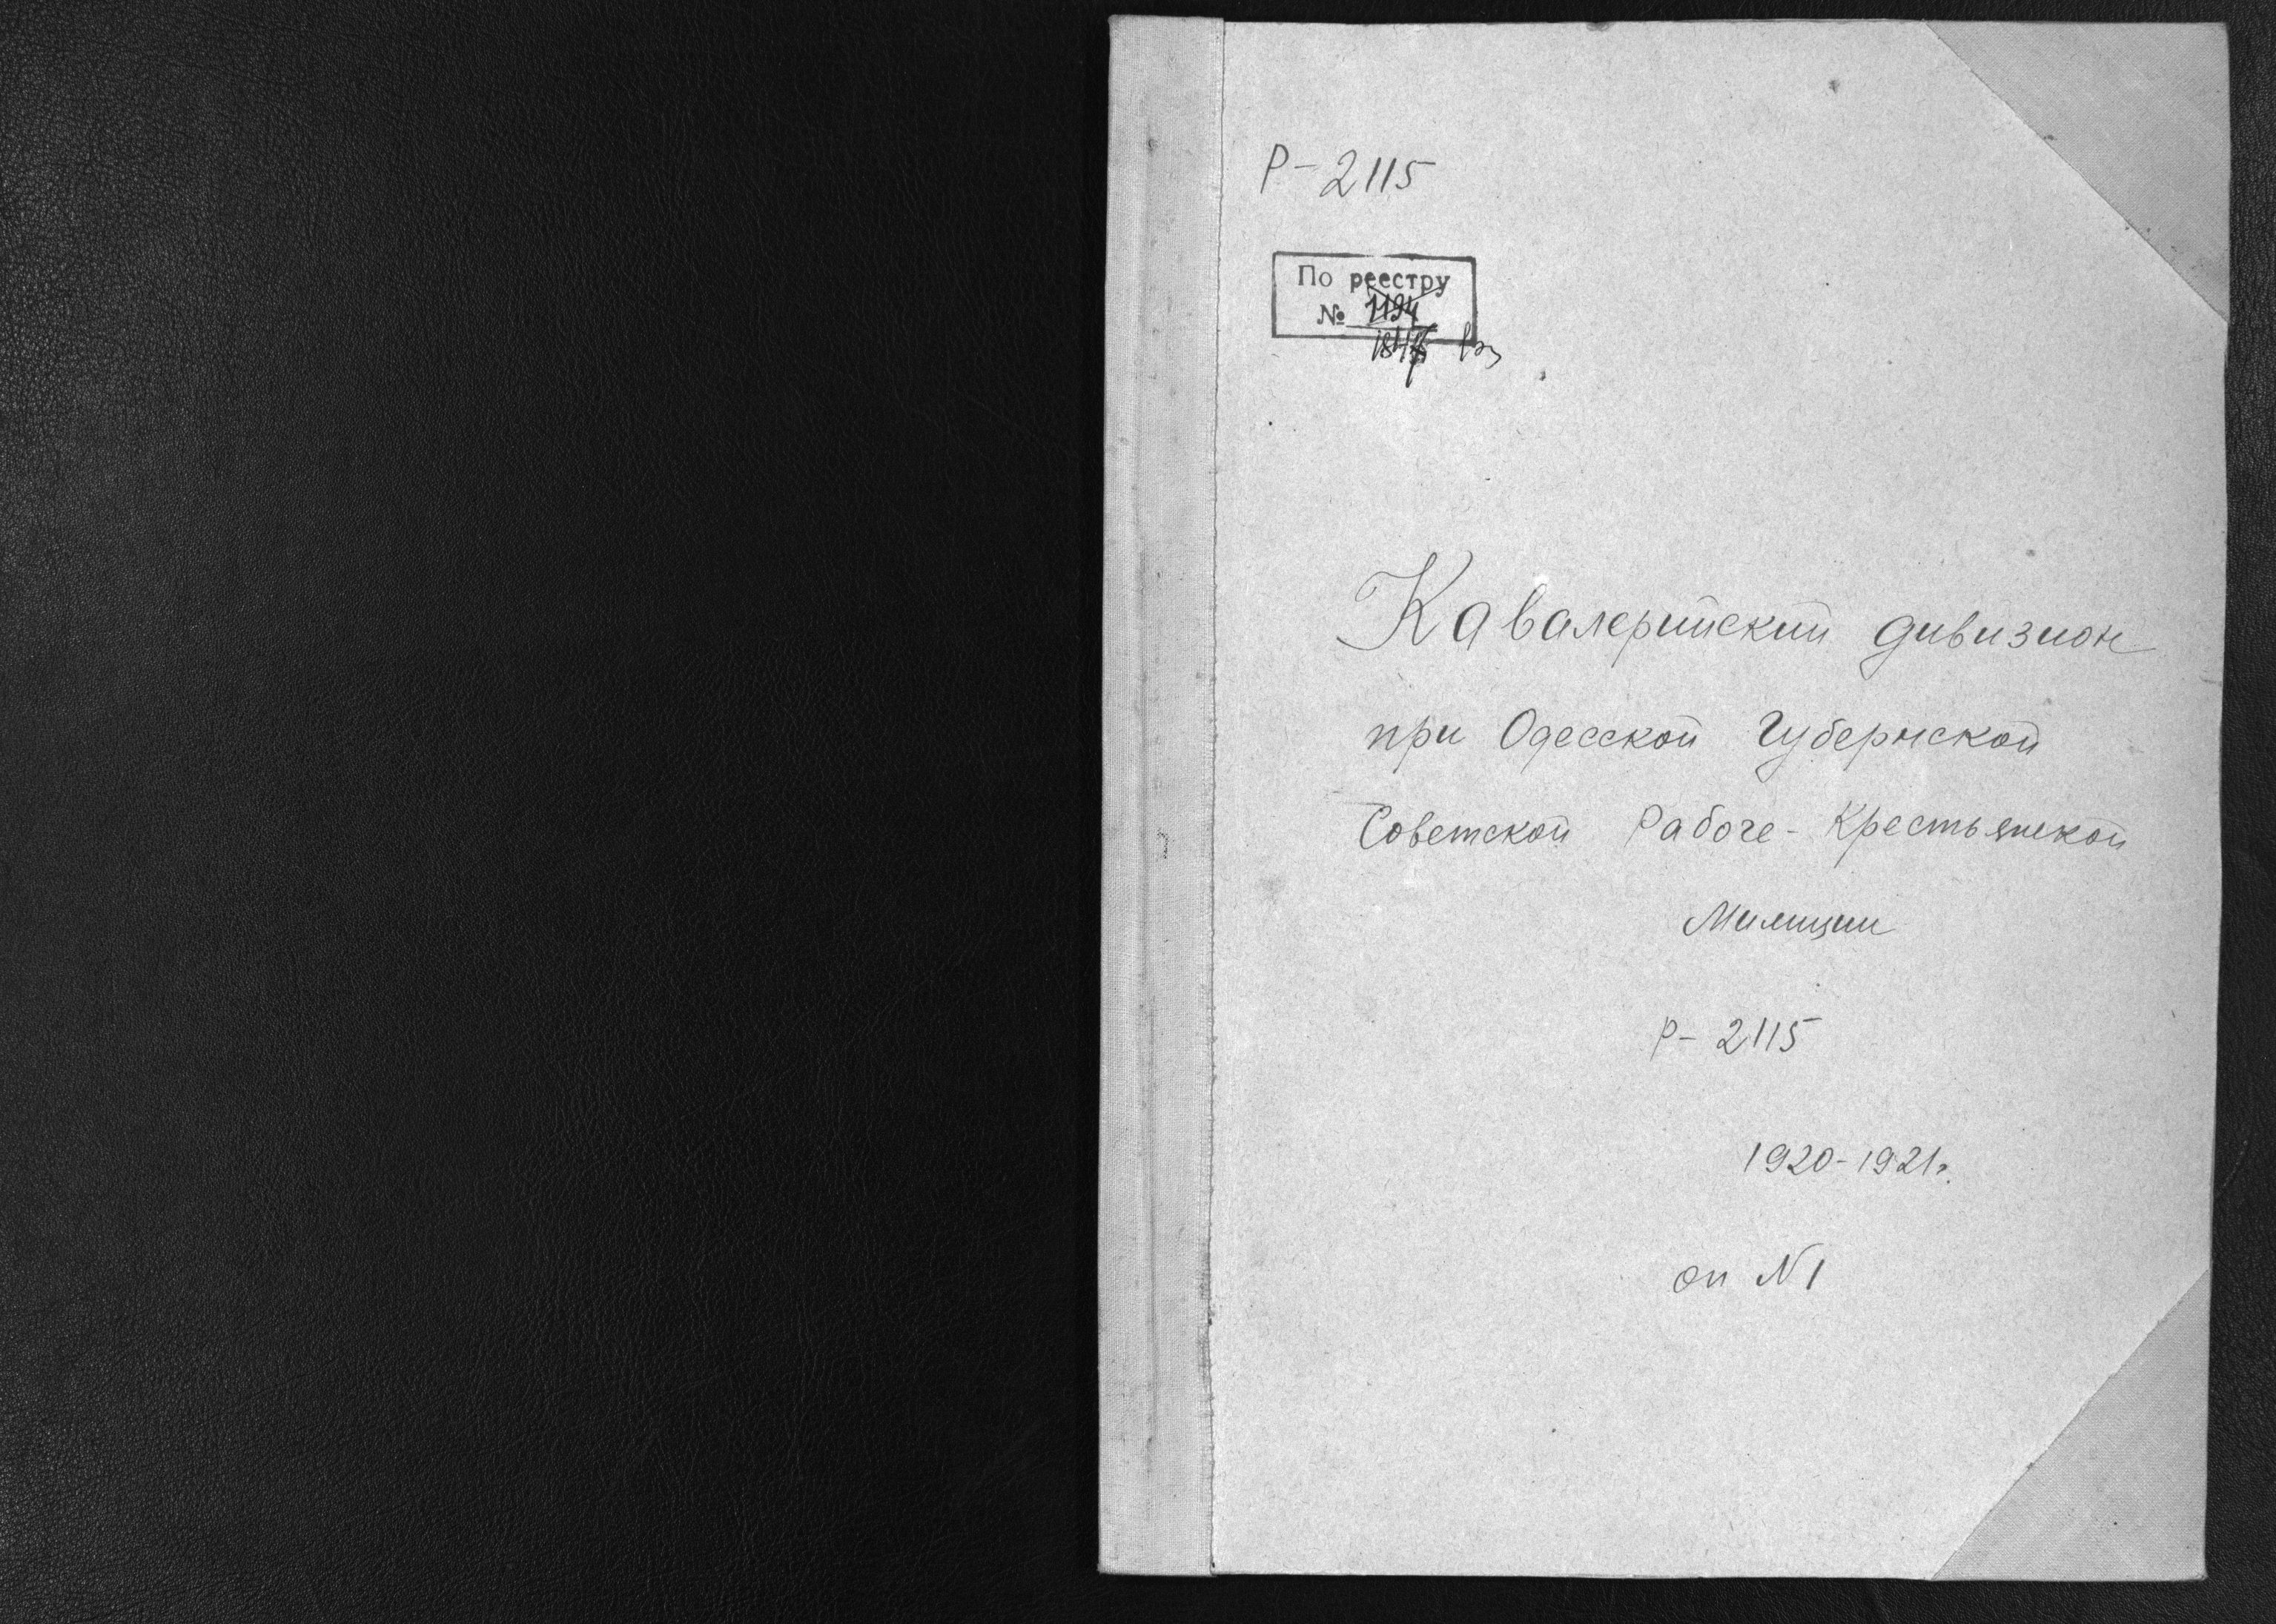 Р-2115
По реестру
№ 1194
Кавалерийский дивизион
при Одесской Губернской
Советской Рабоче-Крестьянской
Милиции
Р-2115
1920-1921г.
оп N1